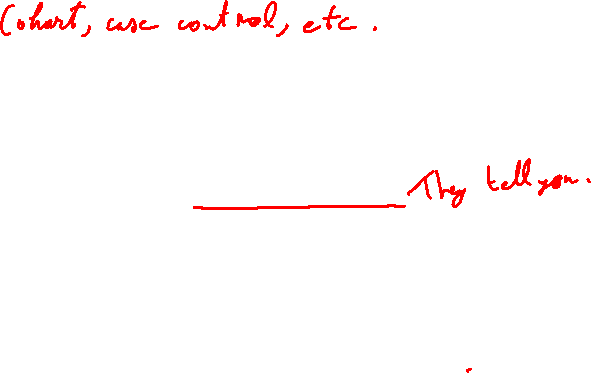 Cohort, case control, etc.
They tell you.